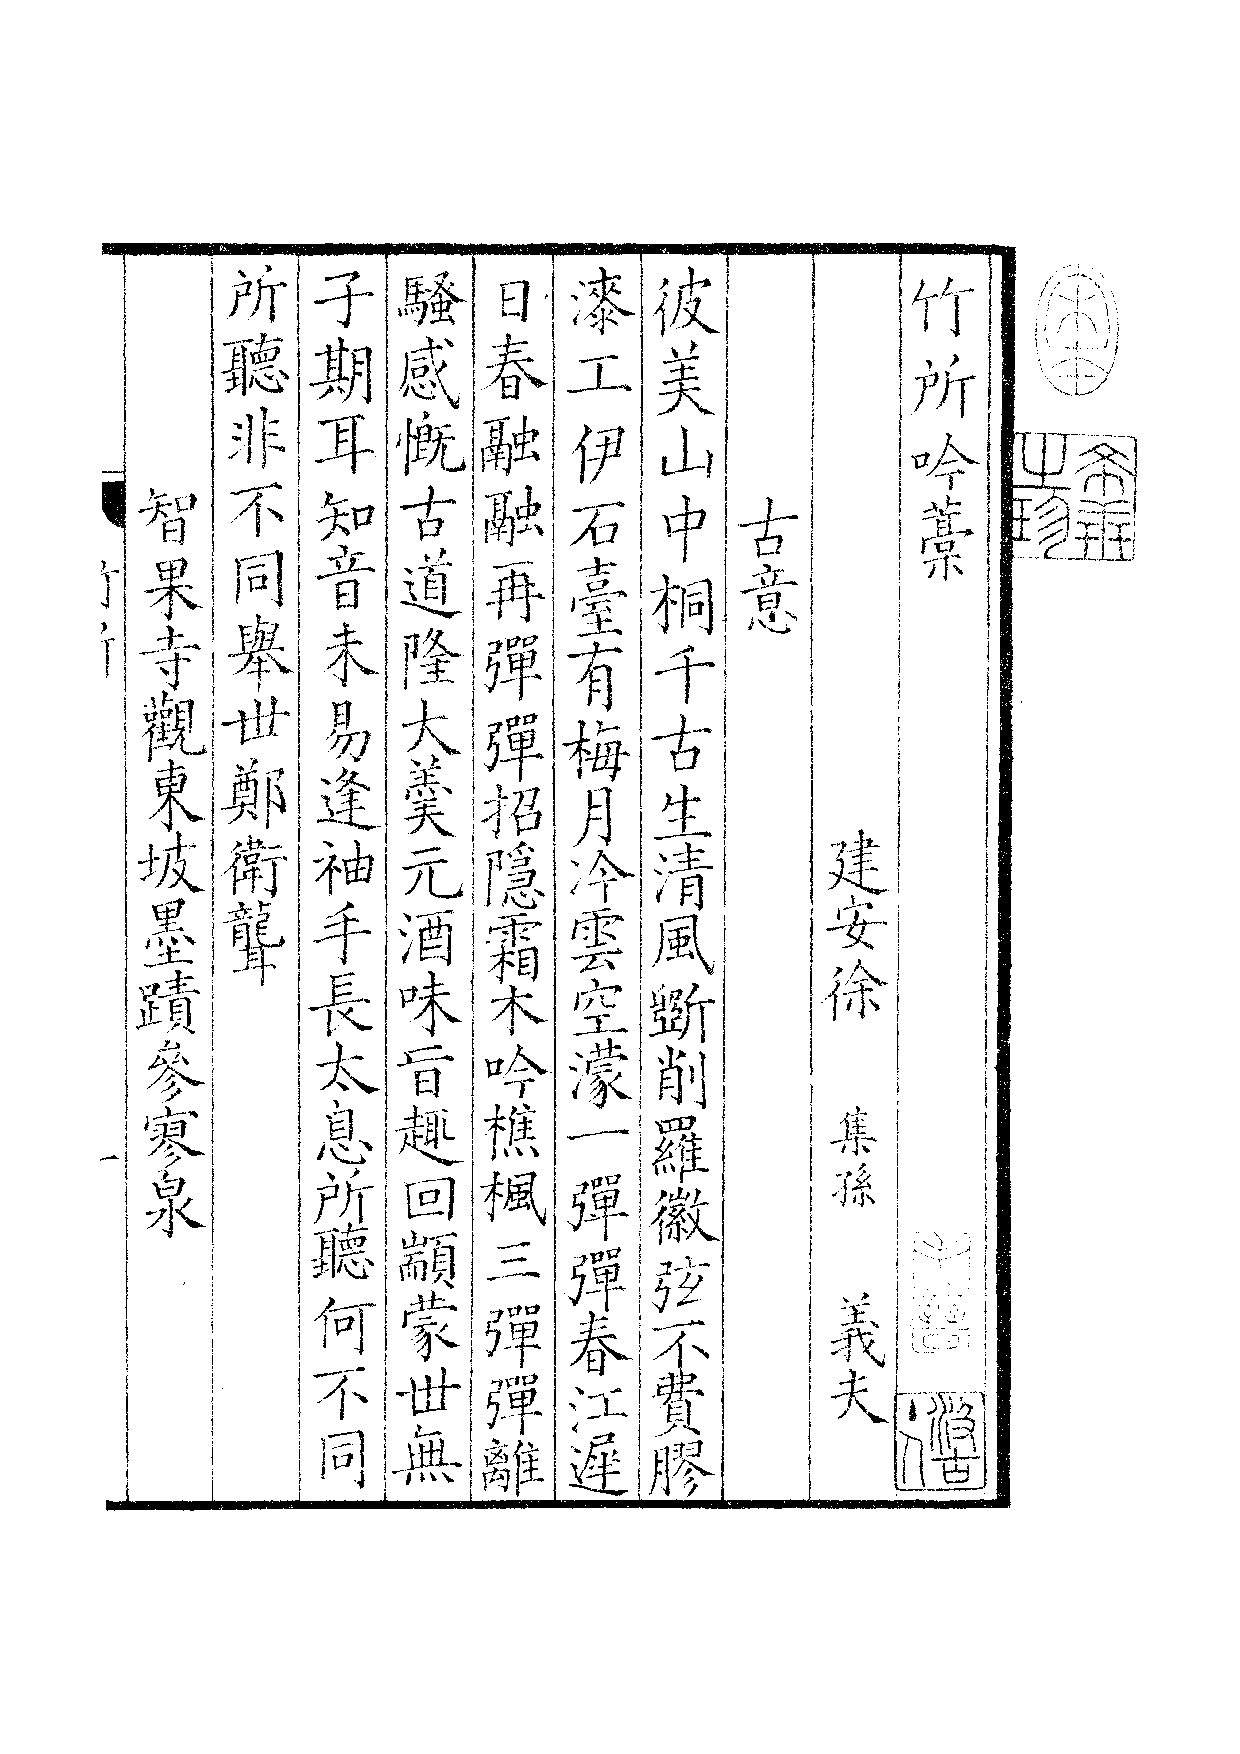 竹所吟藁
建安徐 集孫 義夫
古意
彼美山中桐千古生清風斲削羅徽弦不費膠
漆工伊石臺有梅月冷雲空濛一彈彈春江遲
日春融融再彈彈招隱霜木吟樵楓三彈彈離
騷感慨古道隆大羹元酒味旨趣回顓蒙世無
子期耳知音未易逢袖手長太息所聽何不同
所聽非不同舉世鄭衛聾
智果寺觀東坡墨蹟參寥泉
竹所
一
宋本
希世之珍